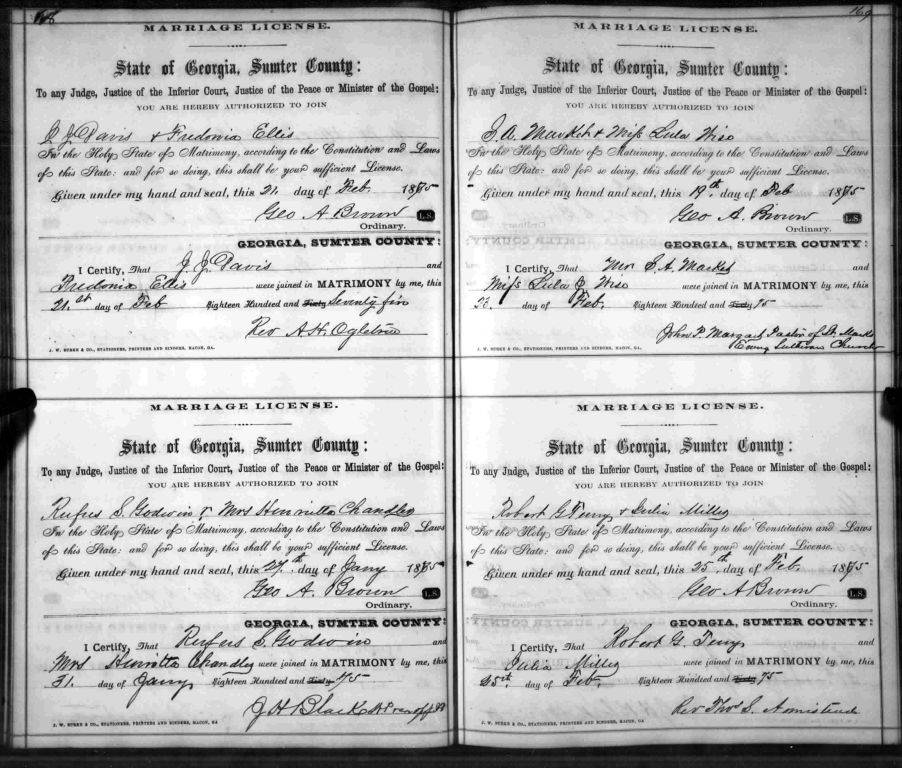 168
MARRIAGE LICENSE.
State of Georgia, Sumter County:
To any Judge, Justice of the Inferior Court, Justice of the Peace or Minister of the Gospel:
YOU ARE HEREBY AUTHORIZED TO JOIN
J J Davis & Fredonia Ellis
In the Holy State of Matrimony, according to the Constitution and Laws
of this State: and for so doing, this shall be your sufficient License.
Given under my hand and seal, this 21. day of Feb 1875
Geo A Brown L.S.
Ordinary.
GEORGIA, SUMTER COUNTY:
I Certify, That J J Davis and
Fredonia Ellis were joined in MATRIMONY by me, this
21.st day of Feb Eighteen Hundred and Sixty Seventy five
Rev A. H.
J. W. BURKE & CO., STATIONERS, PRINTERS AND BINDERS, MACON, GA.
MARRIAGE LICENSE.
State of Georgia, Sumter County:
To any Judge, Justice of the Inferior Court, Justice of the Peace or Minister of the Gospel:
YOU ARE HEREBY AUTHORIZED TO JOIN
Rufus S. Godwin & Mrs Henrietta Chandley
In the Holy State of Matrimony, according to the Constitution and Laws
of this State: and for so doing, this shall be your sufficient License.
Given under my hand and seal, this 27.th day of Jany 1875
Geo A. Brown L.S.
Ordinary.
GEORGIA, SUMTER COUNTY:
I Certify, That Rufus S. Godwin and
Mrs Henrietta Chandley were joined in MATRIMONY by me, this
31. day of Jany Eighteen Hundred and Sixty 75
J H Black
J. W. BURKE & CO., STATIONERS, PRINTERS AND BINDERS, MACON, GA
169
MARRIAGE LICENSE.
State of Georgia, Sumter County:
To any Judge, Justice of the Inferior Court, Justice of the Peace or Minister of the Gospel:
YOU ARE HEREBY AUTHORIZED TO JOIN
& Miss Lula Wise
In the Holy State of Matrimony, according to the Constitution and Laws
of this State: and for so doing, this shall be your sufficient License.
Given under my hand and seal, this 19th day of Feb 1875
Geo A. Brown L.S.
Ordinary.
GEORGIA, SUMTER COUNTY:
I Certify, That Mr and
Miss Lula Wise were joined in MATRIMONY by me, this
day of Feb. Eighteen Hundred and Sixty 75
John P. Pastor of St. Church
J. W. BURKE & CO., STATIONERS, PRINTERS AND BINDERS, MACON, GA.
MARRIAGE LICENSE.
State of Georgia, Sumter County:
To any Judge, Justice of the Inferior Court, Justice of the Peace or Minister of the Gospel:
YOU ARE HEREBY AUTHORIZED TO JOIN
Robert G. & Julia
In the Holy State of Matrimony, according to the Constitution and Laws
of this State: and for so doing, this shall be your sufficient License.
Given under my hand and seal, this 25th day of Feb. 1875
Geo A Brown L.S.
Ordinary.
GEORGIA, SUMTER COUNTY:
I Certify, That Robert G. and
Julia were joined in MATRIMONY by me, this
25th day of Feb. Eighteen Hundred and Sixty 75
Rev Thos S. Armistead
J. W. BURKE & CO., STATIONERS, PRINTERS AND BINDERS, MACON, GA